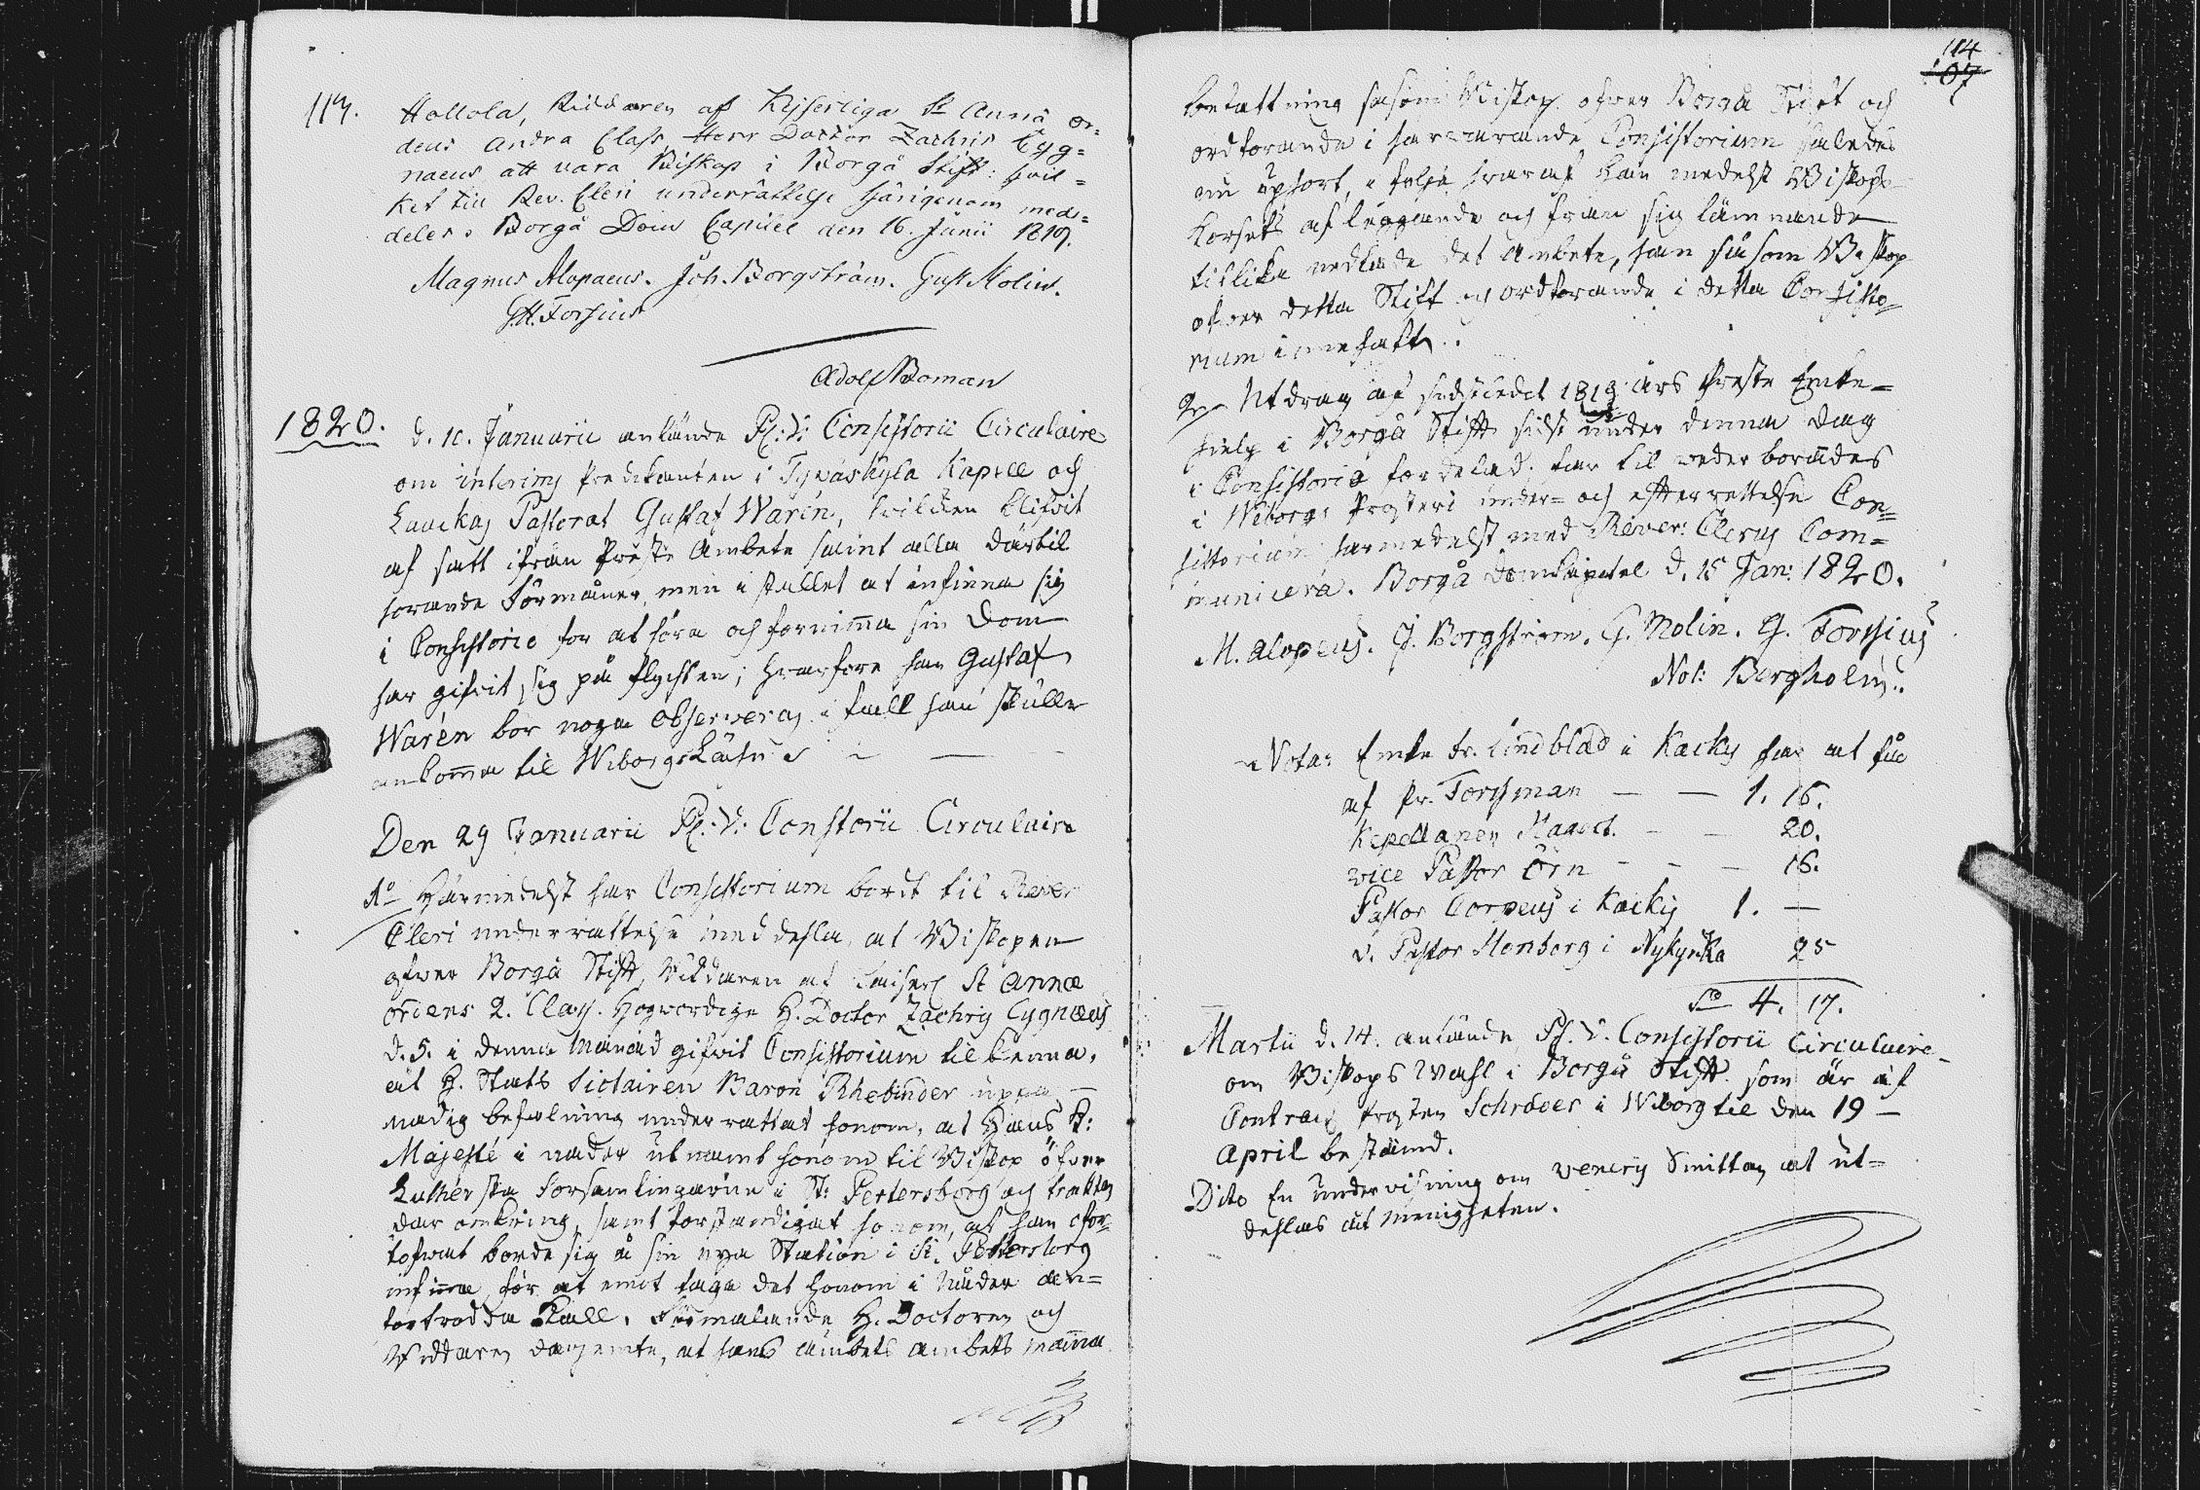 113.
Hollola, Riddaren af Kejserliga St Annæ or=
dens Andra Class, Herr Doctor Zachris Cyg=
naeus att vara Biskop i Borgå Stift: hvil=
ket till Rev. Cleri underrättelse härigenom med=
deles. Borgå Dom Capitel den 16. Junii 1819.
Magnus Alopaeus. Joh. Borgström. Gust Molin.
G.H. Forsius
Adolf Boman
1820. d. 10. Januarii anlände Pl: V: Consistorii Circulaire
om interims Predikanten i Jyväskyla Kapell och
Laukas Pastorat Gustaf Warén, hvilken blifvit
af satt ifrån Prästa Ambete samt alla därtil
horande Förmåner, men i stället at infinna sig
i Consistorio for at höra och fornimma sin Dom
har gifvit sig på flychten; hvarfore han Gustaf
Warén bör noga observeras i fall han skulle
ankomma til Wiborgs Län
Den 29 Januarii Pl: V: Constorii Circulaire
1o Härmedelst har Consistorium bordt til Rever
Cleri underrättelse meddela, at Biskopen
ofver Borgå Stift, Riddaren af Kaiserl St Annæ
ordens 2. Class. Hogvordige H. Doctor Zachris Cygnæus
d. 5. i denna Månad gifvit Consistorium til kenna,
at H. Stats Baron Rhebinder uppå
nådig befalning underrättat honom, at Hans K:
Majesté i nåder utnämt honom til Biskop öfver
Lutherska Forsamlingarne i St: Petersborg och trakten
dar omkring, samt forständigat honom, at han ofor-
tofvat borde sig å sin nya Station i St. Pettersborg
infinna för at emot taga det honom i Nåder an=
fortrodda Kall, Formälande H. Doctoren och
Riddaren dar jemte, at hans ämbets ambets manna
114
107
befattning såsom Biskop ofver Borgå Stift och
ordforande i harvarande Consistorium således
nu uphört, i folje hvaraf han medelst Biskops
Korsets afleggande och från sig lämnande
tillika nedlade det Ambete, han såsom Biskop
ofver detta Stift och ordforande i detta Consisto-
rium innehaft.
2o Utdrag af 1819 års Preste Enke=
hielp i Borgå Stift sidst under denna dag
i Consistorio fördelad, har til vederborandes
i Wiborgs Prosteri under= och efterrettelse Con=
sistorium harmedelst med Rever: Clerus Com=
municera. Borgå Domkapitel d. 15 Jan: 1820.
M. Alopeus. J. Borgström. G. Molin. G. Forssius
Not: Bergholm.
Nota: Enke fr. Lindblad i Kacky har at få
af Pr. Forssman — — 1. 16.
Kapellanen — — 20.
vice Pastor Örn — — — 16.
Pastor Corpeus i Kackis 1. —
v. Pastor Stenborg i Nykyrka 25
Sa 4. 17.
Martii d. 14. anlände Pl. V. Consistorii Circulaire
om Biskops Wahl i Borgå Stift som är af
Contracts Prosten Schröder i Wiborg til den 19 —
April bestämd.
Dito En undervisning om veneris Smittan at ut=
delas åt menigheten.